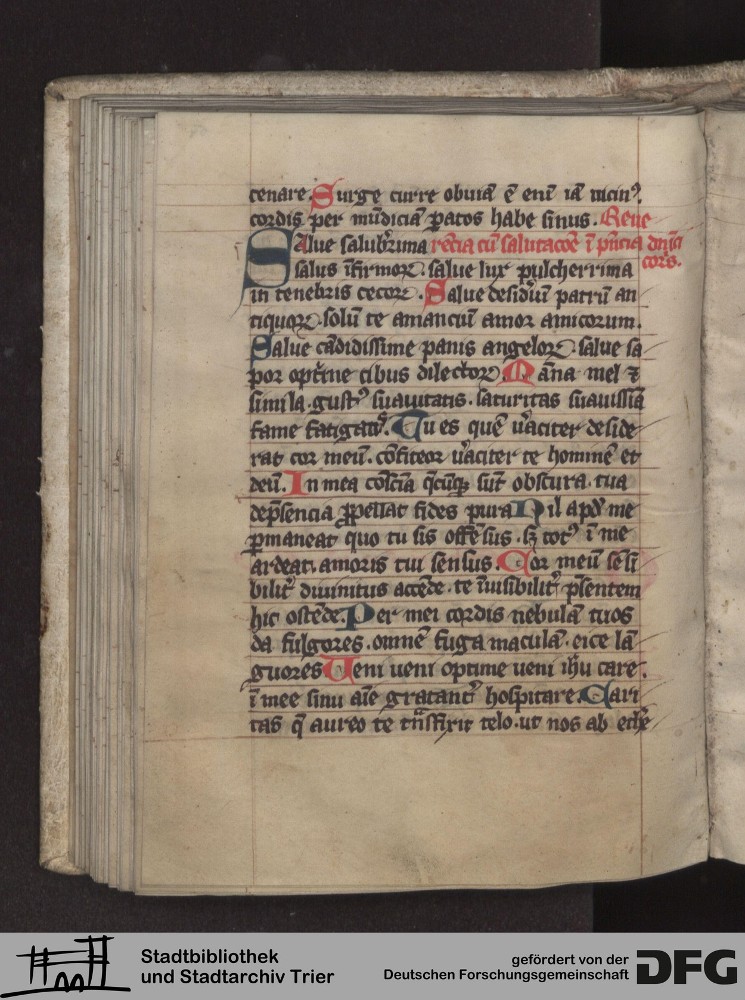 cenare. Surge curre obuiã ẽ enĩ iã uicinꝰ.
cordis per mũdiciã ꝑatos habe sinus. Reue
Salue salub̃rima rẽcia cũ salutacõẽ ĩ p̃ñcia dñici
cors.
salus ĩfirmoꝝ. salue lux pulcherrima
in tenebris cecoꝝ. Salue desidiũi patrũ an
tiquoꝝ. solũ te amanciũ amor amicorum.
Salue cãdidissime panis angeloꝝ. salue sa
por optĩme cibus dilectoꝝ. Mãna mel ⁊
simila. gustꝰ suauitatis. saturitas suauissiã
fame fatigatis̃. Tu es quẽ ũaciter deside
rat cor meũ. cõfiteor ũaciter te hominẽ et
deũ. In mea cõsciã q̃cũqꝫ sũt obscura. tua
dep̃sencia ꝓpellat fides pura Nil apd̾ me
ꝑmaneat quo tu sis offẽsus. sꝫ totꝰ ĩ me
ardeat. amoris tui sensus. Cor meũ sẽsi
bilit̾ diuinitus accẽde. te ĩuisibilit̾ p̃sentem
hic ostẽde. Per mei cordis nebulã tuos
da fulgores. omnẽ fuga maculã. eice lã
guores Ueni ueni optime ueni ih̃u care.
ĩ mee sinu aĩe gratant̾ hospitare. Cari
tas q̃ aureo te trãsfixit telo. ut nos ab
Stadtbibliothek
und Stadtarchiv Trier
gefördert von der
Deutschen Forschungsgemeinschaft
DFG